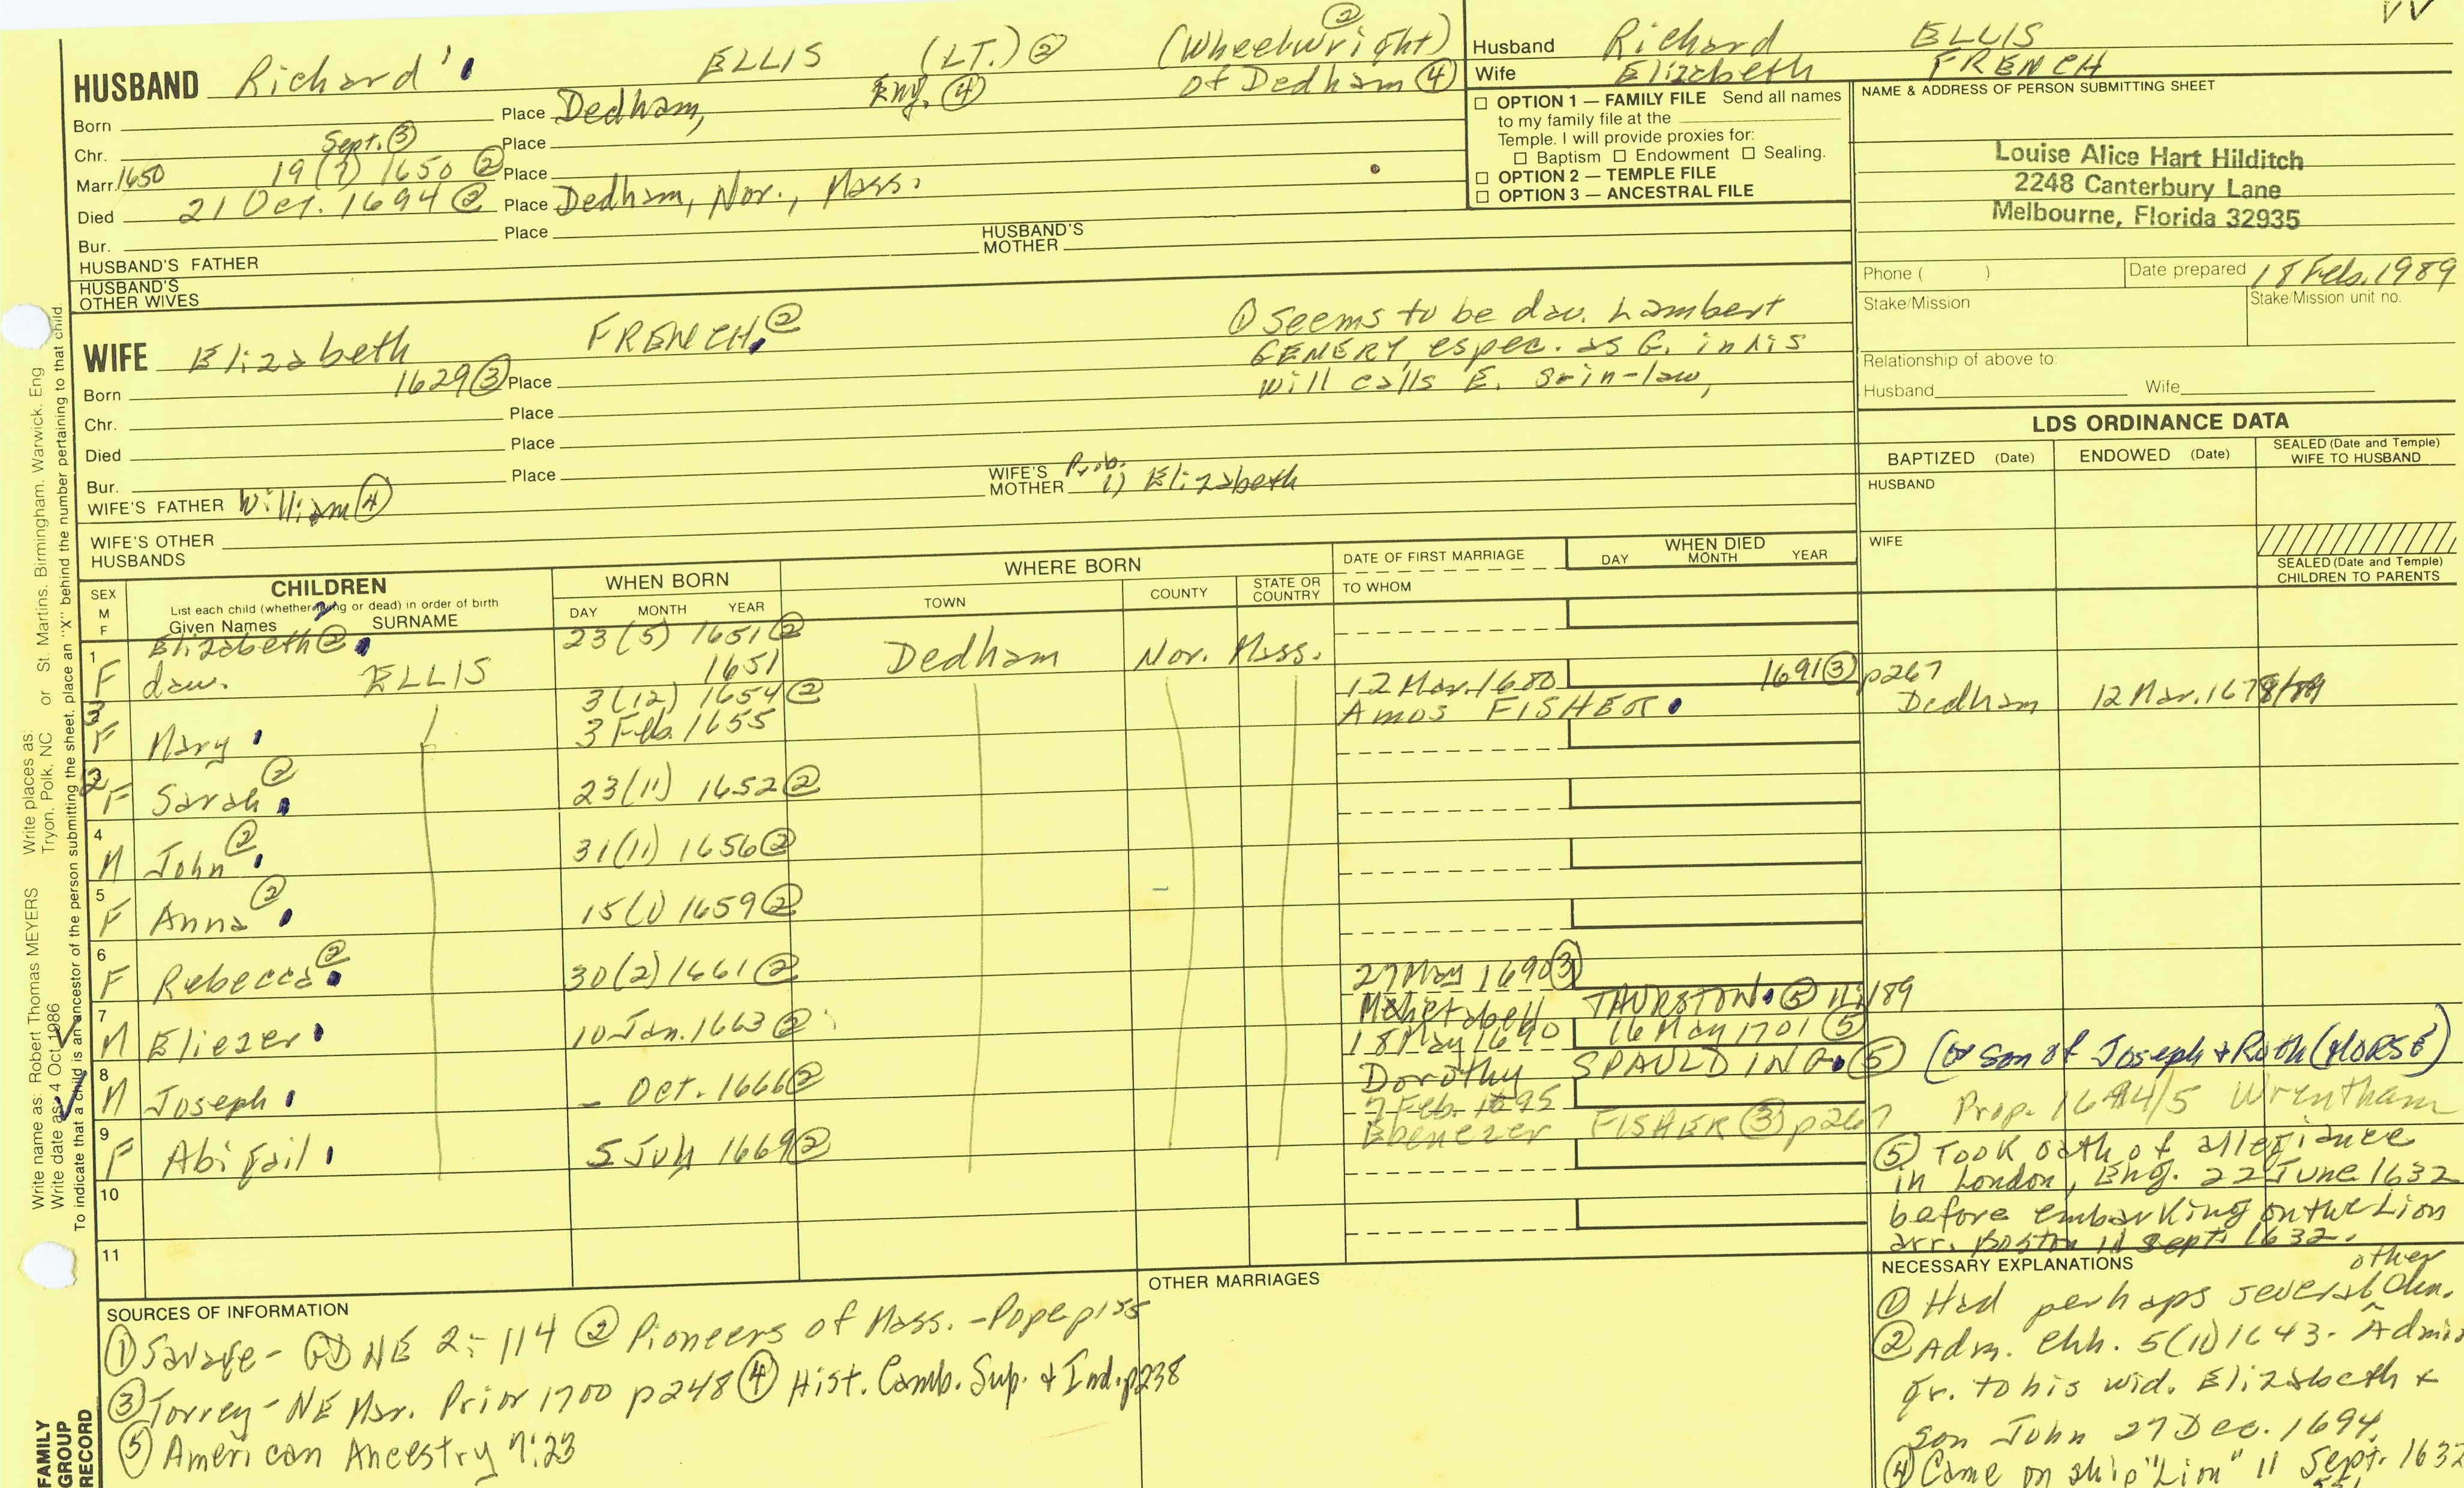 HUSBAND Richard ELLIS (LT.) ② (Wheelwright) ②
of Dedham ④
Born Place Dedham, Eng. ④
Chr. Place
Marr. 1650 Sept. ③ 19 (7) 1650 ② Place
Died 21 Oct. 1694 ② Place Dedham, Nor., Mass.
Bur. Place
HUSBAND'S FATHER
HUSBAND'S MOTHER
HUSBAND'S OTHER WIVES
WIFE Elizabeth FRENCH ②
① Seems to be dau. Lambert
GENERY, espec. as G. in his
will calls E. s-in-law,
Born 1629 ③ Place
Chr. Place
Died Place
Bur. Place
WIFE'S FATHER William ④
WIFE'S MOTHER Prob. 1) Elizabeth
WIFE'S OTHER HUSBANDS
Husband Richard ELLIS
Wife Elizabeth FRENCH
VV
☐ OPTION 1 — FAMILY FILE Send all names
to my family file at the
Temple. I will provide proxies for:
☐ Baptism ☐ Endowment ☐ Sealing.
☐ OPTION 2 — TEMPLE FILE
☐ OPTION 3 — ANCESTRAL FILE
NAME & ADDRESS OF PERSON SUBMITTING SHEET
Louise Alice Hart Hilditch
2248 Canterbury Lane
Melbourne, Florida 32935
Phone ( )
Date prepared 18 Feb. 1989
Stake/Mission
Stake/Mission unit no.
Relationship of above to:
Husband Wife
LDS ORDINANCE DATA
BAPTIZED (Date)
ENDOWED (Date)
SEALED (Date and Temple)
WIFE TO HUSBAND
HUSBAND
WIFE
SEALED (Date and Temple)
CHILDREN TO PARENTS
SEX
M
F
CHILDREN
List each child (whether or dead) in order of birth
Given Names SURNAME
WHEN BORN
DAY MONTH YEAR
WHERE BORN
TOWN COUNTY STATE OR COUNTRY
DATE OF FIRST MARRIAGE
TO WHOM
WHEN DIED
DAY MONTH YEAR
Elizabeth ② 23 (5) 1651 ②
1 F dau. ELLIS 1651 Dedham Nor. Mass.
3 F Mary 3 (12) 1654 ②
3 Feb. 1655
12 Mar. 1680 1691 ③ p267
Amos FISHER Dedham 12 Mar. 1678/79
2 F Sarah ② 23 (11) 1652 ②
4 M John ② 31 (11) 1656 ②
5 F Anna ② 15 (1) 1659 ②
6 F Rebecca ② 30 (2) 1661 ②
7 M Eliezer 10 Jan. 1663 ② 27 May 1690 ③
THURSTON ⑤
8 M Joseph Oct. 1666 ② 18 May 1690 16 May 1701 ⑤
Dorothy SPAULDING ⑤ (or son of Joseph & Ruth (MORSE)
9 F Abigail 5 July 1669 ② 7 Feb. 1695
Ebenezer FISHER ③ p267 Prop. Wrentham
10
11
⑤ Took oath of allegiance
in London, Eng. 22 June 1632
before embarking on the Lion
arr. Boston Sept. 1632.
SOURCES OF INFORMATION
① Savage - GD NE 2:114 ② Pioneers of Mass. - Pope p155
③ Torrey - NE Mar. Prior 1700 p248 ④ Hist. Camb. Sup. & Ind. p238
⑤ American Ancestry 7:23
OTHER MARRIAGES
NECESSARY EXPLANATIONS
① Had perhaps several other chn.
② Adm. chh. 5 (11) 1643. Admin
gr. to his wid. Elizabeth &
son John 27 Dec. 1694.
④ Came on ship "Lion" 11 Sept. 1632
FAMILY
GROUP
RECORD
Write name as: Robert Thomas MEYERS Write places as: Tryon, Polk, NC or St. Martins, Birmingham, Warwick, Eng
Write date as: 4 Oct 1986
To indicate that a child is an ancestor of the person submitting the sheet, place an "X" behind the number pertaining to that child.